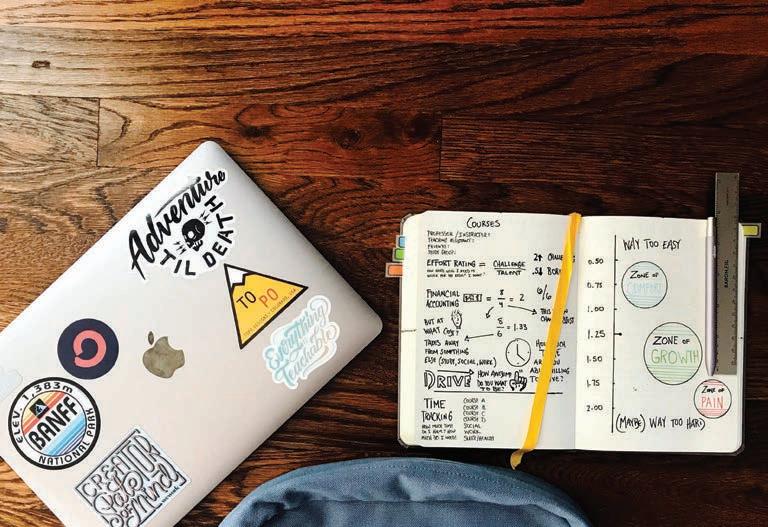 Adventure
'TIL DEATH
TO PO
Everything
Teachable
ELEV. 1,383m
BANFF
NATIONAL PARK
CREATOR
of
Mind
COURSES
PROFESSOR / INSTRUCTOR:
TEACHING ASSISTANT:
STUDY GROUP:
EFFORT RATING = CHALLENGE
TALENT
2↑
.5↓
FINANCIAL
ACCOUNTING
= 8/4 = 2
6/6
BUT AT
WHAT COST?
8/6 = 1.33
TAKES AWAY
FROM SOMETHING
ELSE (STUDY, SOCIAL, WORK)
DRIVE
HOW AWESOME
DO YOU WANT
TO BE?
TIME
TRACKING
COURSE A
COURSE B
COURSE C
COURSE D
SOCIAL
WORK
SLEEP/HEALTH
HOW MUCH TIME
DO I HAVE? HOW
MUCH DO I NEED?
WAY TOO EASY
0.50
0.75
1.00
1.25
1.50
1.75
2.00
ZONE OF
COMFORT
ZONE OF
GROWTH
ZONE OF
PAIN
(MAYBE) WAY TOO HARD